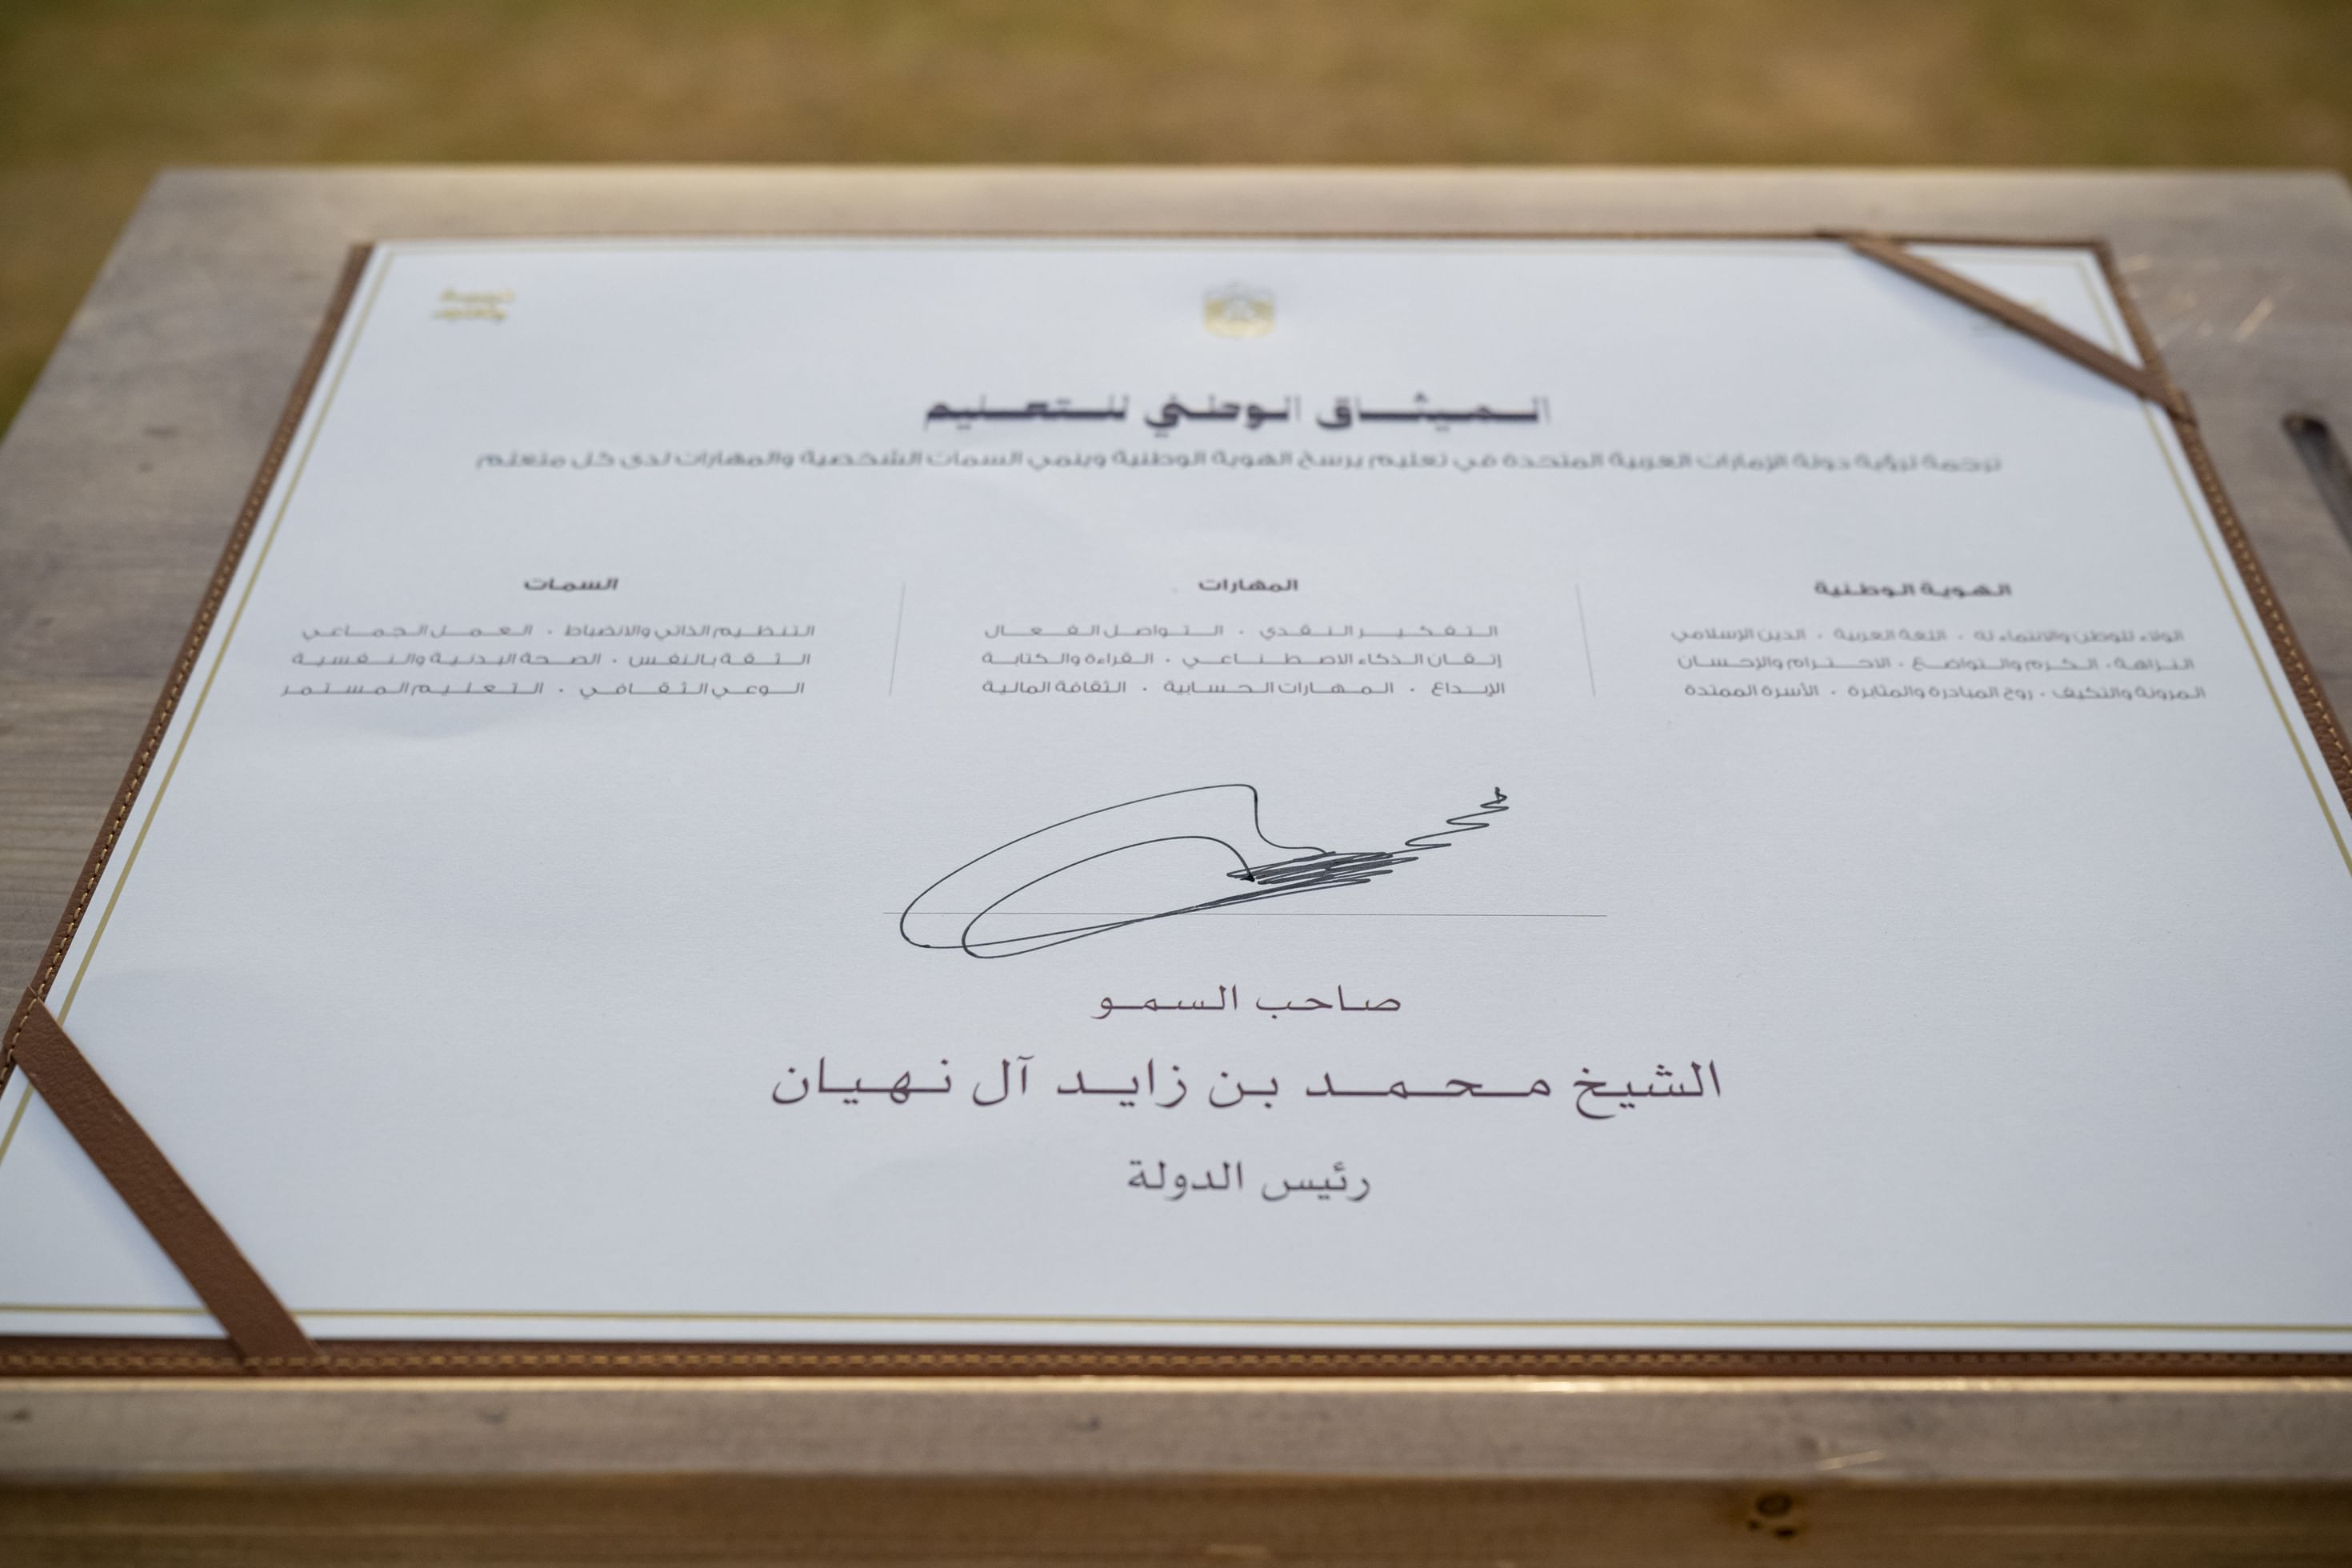 الميثاق الوطني للتعليم
ترجمة لرؤية دولة الإمارات العربية المتحدة في تعليم يرسخ الهوية الوطنية وينمي السمات الشخصية والمهارات لدى كل متعلم
الهوية الوطنية
الولاء للوطن والانتماء له • اللغة العربية • الدين الإسلامي
النزاهة • الكرم والتواضع • الاحترام والإحسان
المرونة والتكيف • روح المبادرة والمثابرة • الأسرة الممتدة
المهارات
التفكير النقدي • التواصل الفعال
إتقان الذكاء الاصطناعي • القراءة والكتابة
الإبداع • المهارات الحسابية • الثقافة المالية
السمات
التنظيم الذاتي والانضباط • العمل الجماعي
الثقة بالنفس • الصحة البدنية والنفسية
الوعي الثقافي • التعليم المستمر
صاحب السمو
الشيخ محمد بن زايد آل نهيان
رئيس الدولة